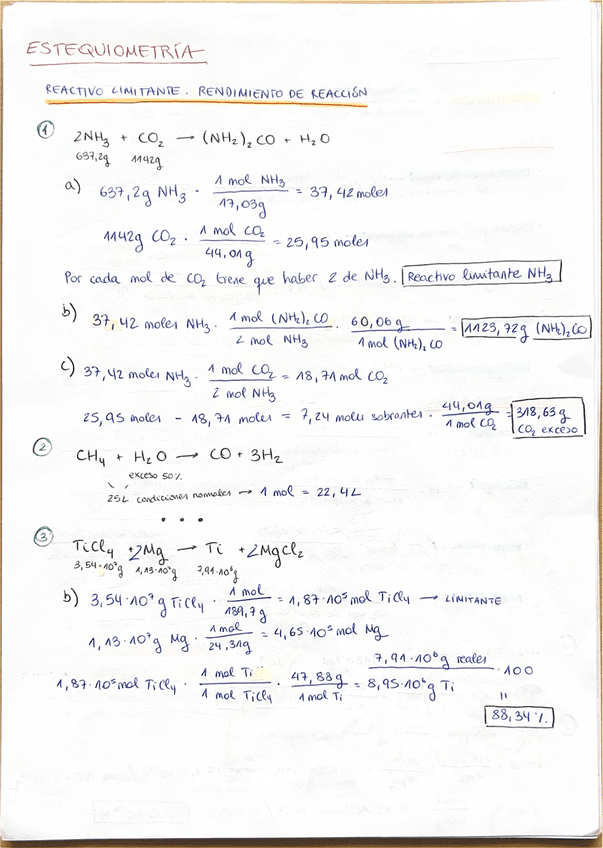 ESTEQUIOMETRÍA
REACTIVO LIMITANTE. RENDIMIENTO DE REACCIÓN
① 2NH₃ + CO₂ → (NH₂)₂CO + H₂O
637,2g 1142g
a) 637,2g NH₃ · 1 mol NH₃ / 17,03g = 37,42 moles
1142g CO₂ · 1 mol CO₂ / 44,01g = 25,95 moles
Por cada mol de CO₂ tiene que haber 2 de NH₃. Reactivo limitante NH₃
b) 37,42 moles NH₃ · 1 mol (NH₂)₂CO / 2 mol NH₃ · 60,06g / 1 mol (NH₂)₂CO = 1123,72g (NH₂)₂CO
c) 37,42 moles NH₃ · 1 mol CO₂ / 2 mol NH₃ = 18,71 mol CO₂
25,95 moles - 18,71 moles = 7,24 moles sobrantes · 44,01g / 1 mol CO₂ = 318,63g CO₂ exceso
② CH₄ + H₂O → CO + 3H₂
exceso 50%
25L condiciones normales → 1 mol = 22,4L
...
③ TiCl₄ + 2Mg → Ti + 2MgCl₂
3,54·10⁷g 1,13·10⁷g 7,91·10⁶g
b) 3,54·10⁷g TiCl₄ · 1 mol / 189,7g = 1,87·10⁵ mol TiCl₄ → LIMITANTE
1,13·10⁷g Mg · 1 mol / 24,31g = 4,65·10⁵ mol Mg
1,87·10⁵ mol TiCl₄ · 1 mol Ti / 1 mol TiCl₄ · 47,88g / 1 mol Ti = 8,95·10⁶g Ti
7,91·10⁶g reales · 100
=
88,34%